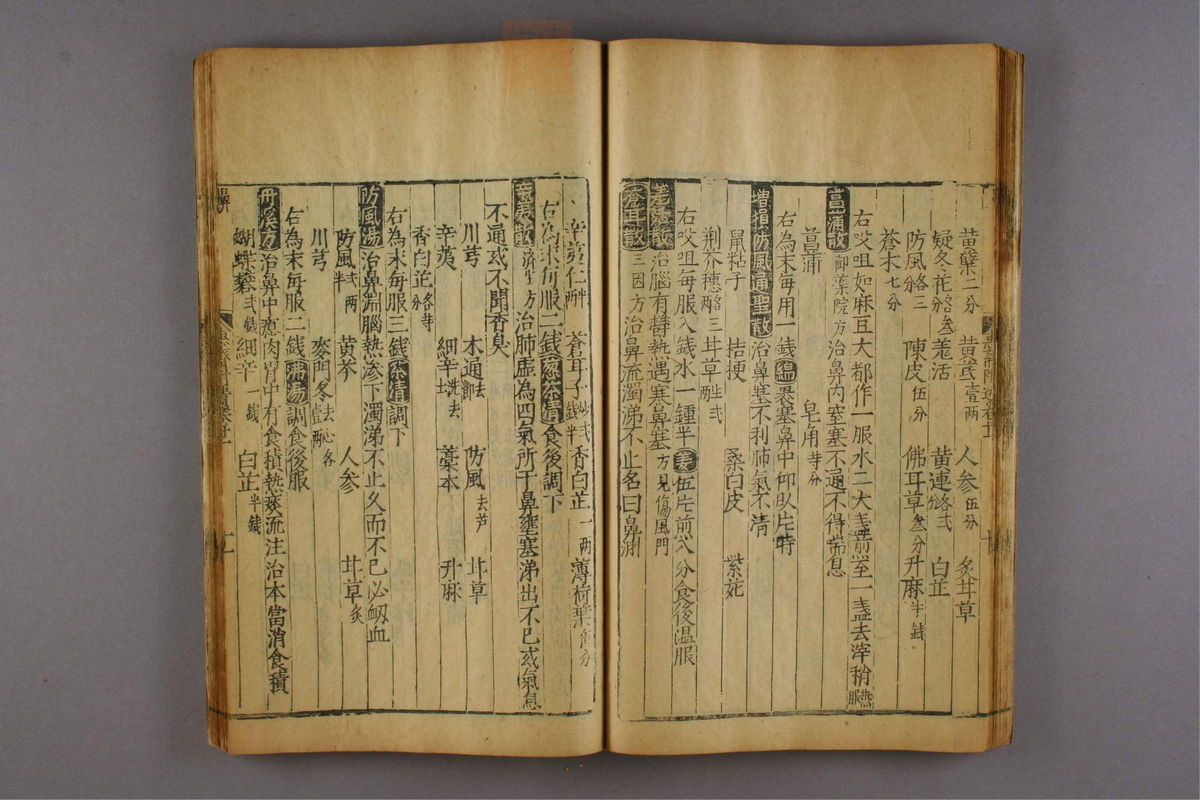 黄蘗二分　黄芩壹兩　人参伍分　炙甘草
欵冬花分各叁羗活　黄連各弍　白芷
防風各三　陳皮伍分　佛耳草叁分升麻半錢
蒼木七分
右㕮咀如麻豆大都作一服水二大盞煎至一盞去滓稍熱服
菖蒲散御藥院方治鼻内窒塞不通不得喘息
菖蒲　皂角等分
右為末每用一錢綿裹塞鼻中仰臥片時
增損防風通聖散治鼻塞不利肺氣不清
鼠粘子　桔梗　桑白皮　紫菀
荆芥穗各三兩　甘草生弍兩
右㕮咀每服八錢水一鍾半姜伍片煎八分食後温服
羗活散治腦有鬱熱遇塞鼻塞方見傷風門
蒼耳散三因方治鼻流濁涕不止名曰鼻淵
辛荑仁半兩　蒼耳子炒弍錢半香白芷一兩薄荷葉
右為末每服二錢葱茶清食後調下
辛荑散濟生方治肺虚為四氣所干鼻壅塞涕出不已或氣息
不通或不聞香臭
川芎　木通去節　防風去芦　甘草
辛荑　細辛洗去土　藁本　升麻
香白芷各等分
右為末每服三錢茶清調下
防風湯治鼻淵腦熱滲下濁涕不止久而不已必衂血
防風弍兩半　黄芩　人参　甘草炙
川芎　麥門冬去心各壹兩
右為末每服二錢沸湯調食後服
丹溪方治鼻中瘜肉胃中有食積熱痰流注治本當消食積
蝴蝶礬弍錢細辛一錢　白芷半錢